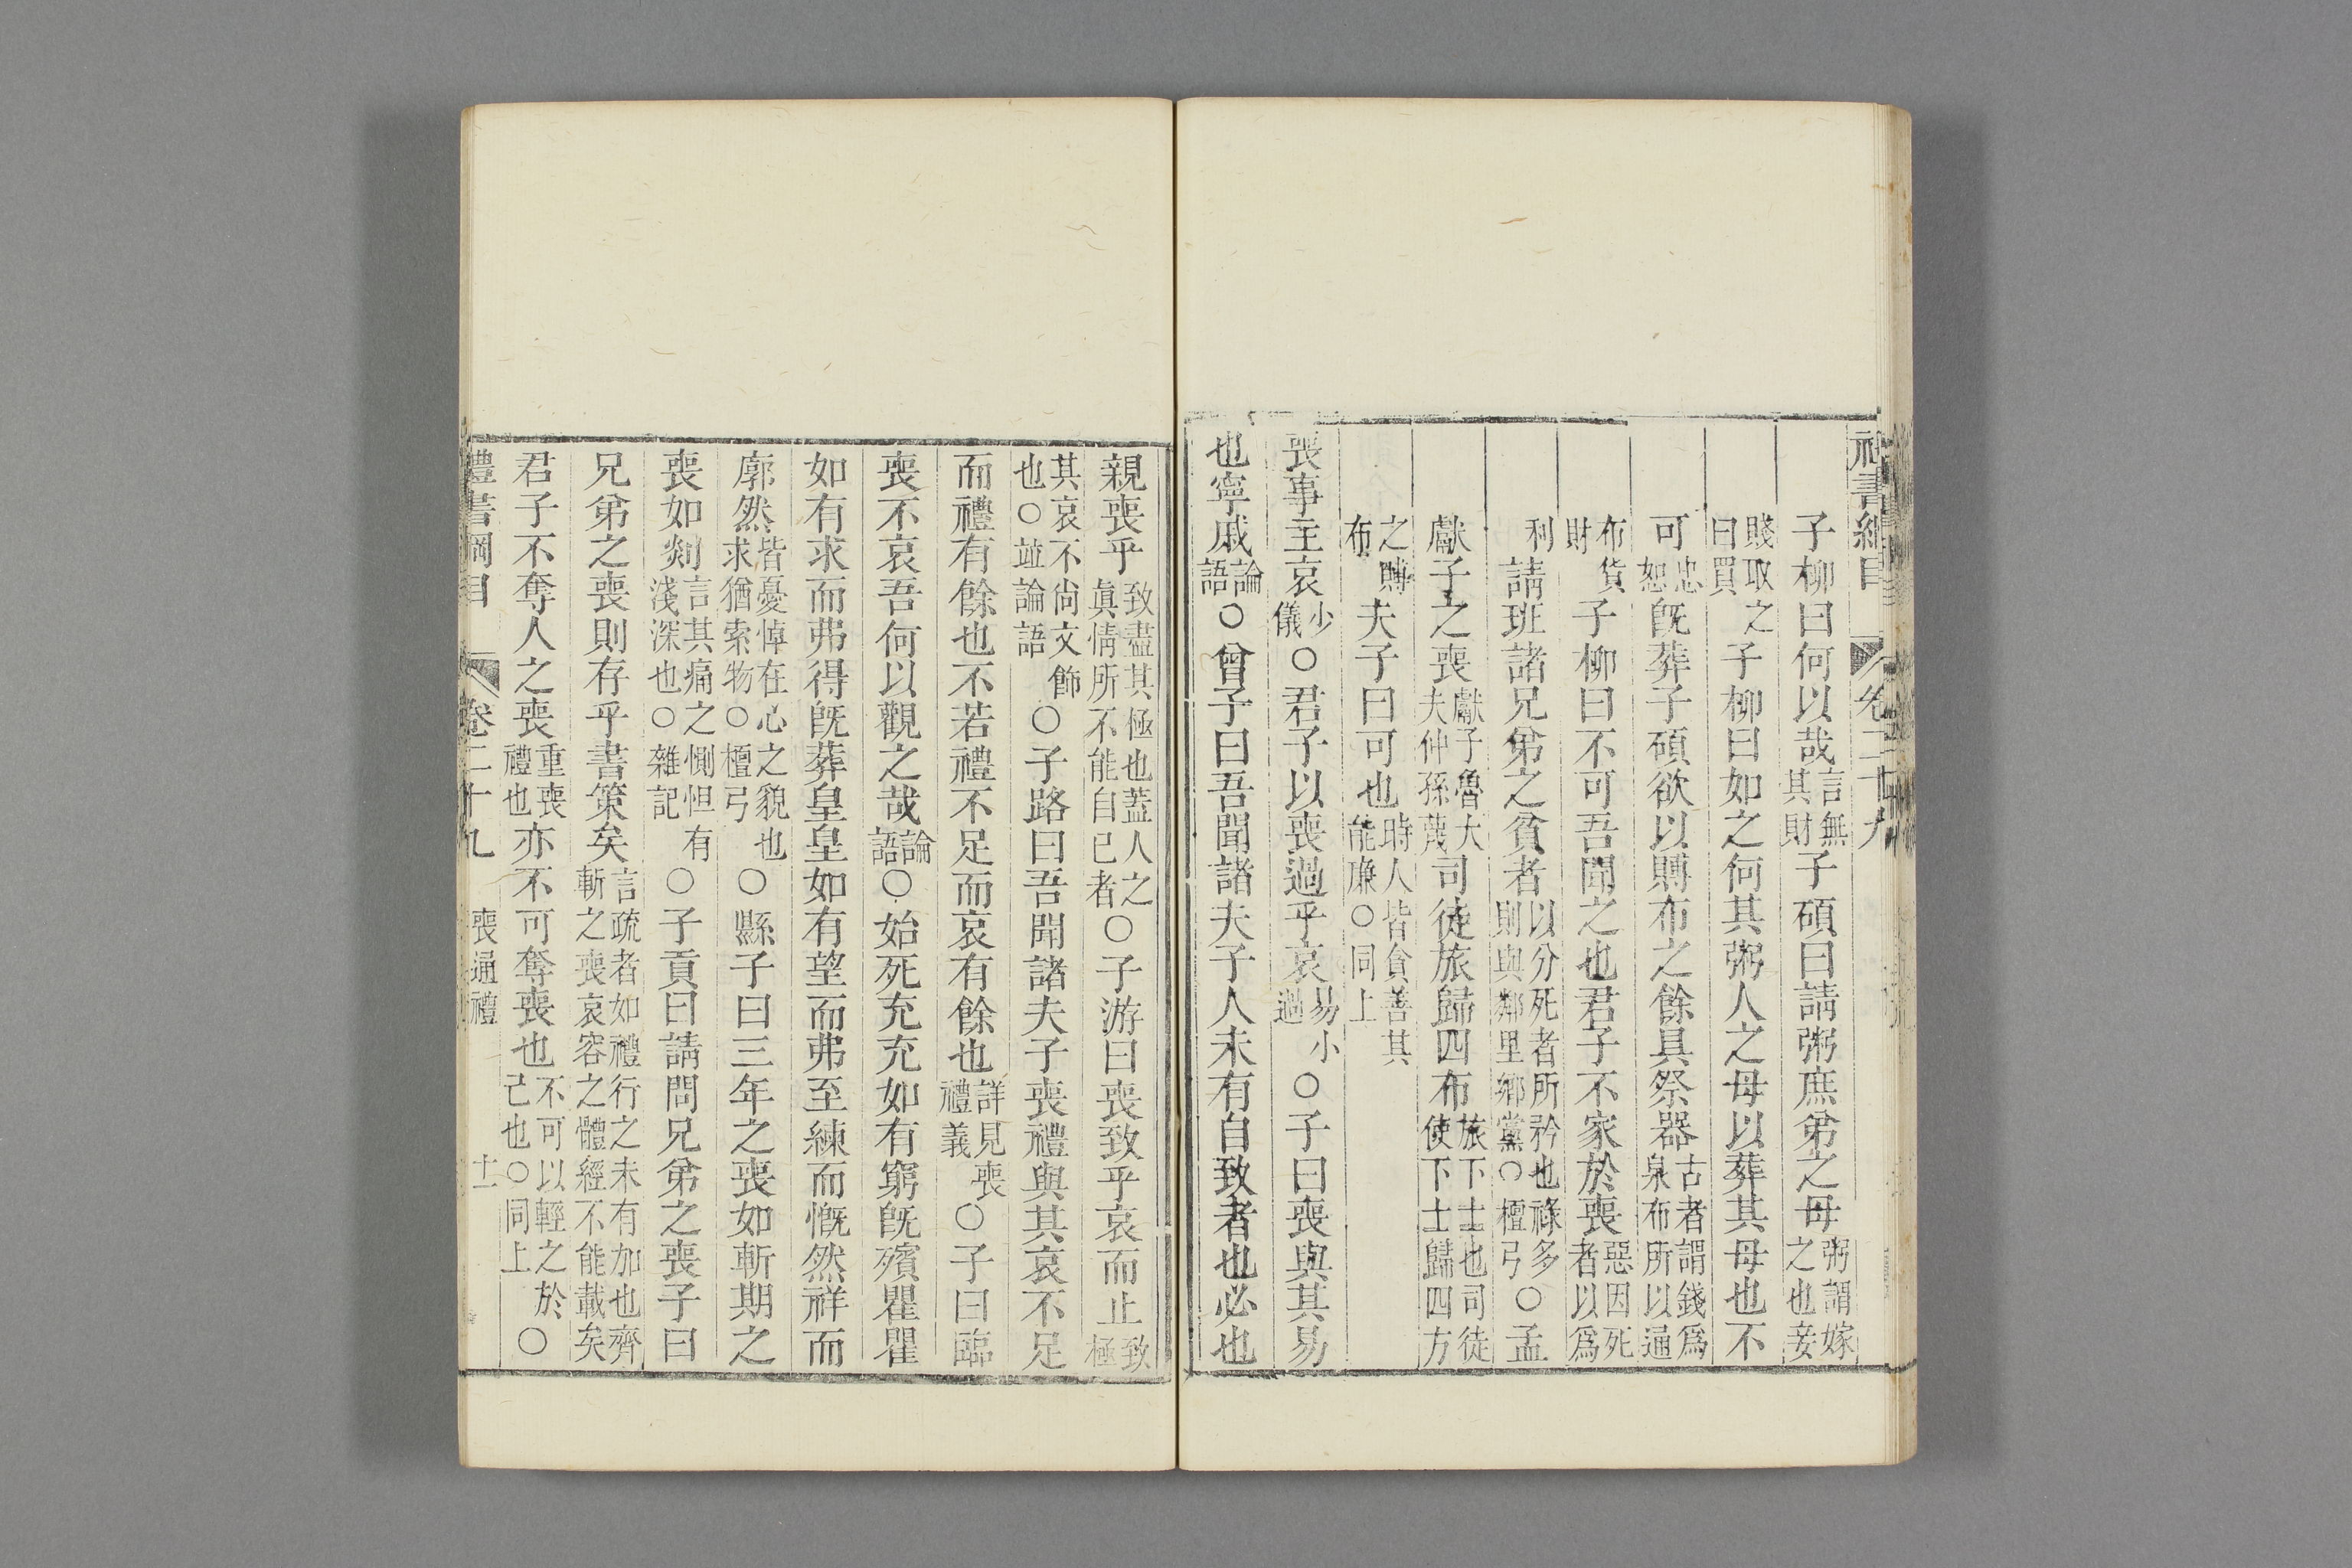 禮書綱目 卷二十九
子柳曰何以哉言無其財子碩曰請粥庶弟之母粥謂嫁之也妾
賤取之曰買子柳曰如之何其粥人之母以葬其母也不
可忠恕旣葬子碩欲以賻布之餘具祭器古者謂錢爲泉布所以通
布貨財子柳曰不可吾聞之也君子不家於喪惡因死者以爲
利請班諸兄弟之貧者以分死者所矜也祿多則與鄰里鄉黨○檀弓○孟
獻子之喪獻子魯大夫仲孫蔑司徒旅歸四布旅下士也司徒使下士歸四方
之賻布夫子曰可也時人皆貪善其能廉○同上
喪事主哀少儀○君子以喪過乎哀易小過○子曰喪與其易
也寧戚論語○曾子曰吾聞諸夫子人未有自致者也必也
親喪乎致盡其極也蓋人之眞情所不能自已者○子游曰喪致乎哀而止致極
其哀不尚文飾也○竝論語○子路曰吾聞諸夫子喪禮與其哀不足
而禮有餘也不若禮不足而哀有餘也詳見喪禮義○子曰臨
喪不哀吾何以觀之哉論語○始死充充如有窮旣殯瞿瞿
如有求而弗得旣葬皇皇如有望而弗至練而慨然祥而
廓然皆憂悼在心之貌也求猶索物○檀弓○縣子曰三年之喪如斬期之
喪如剡言其痛之惻怛有淺深也○雜記○子貢曰請問兄弟之喪子曰
兄弟之喪則存乎書策矣言疏者如禮行之未有加也齊斬之喪哀容之體經不能載矣
君子不奪人之喪重喪禮也亦不可奪喪也不可以輕之於己也○同上○
禮書綱目 卷二十九 喪通禮 十一